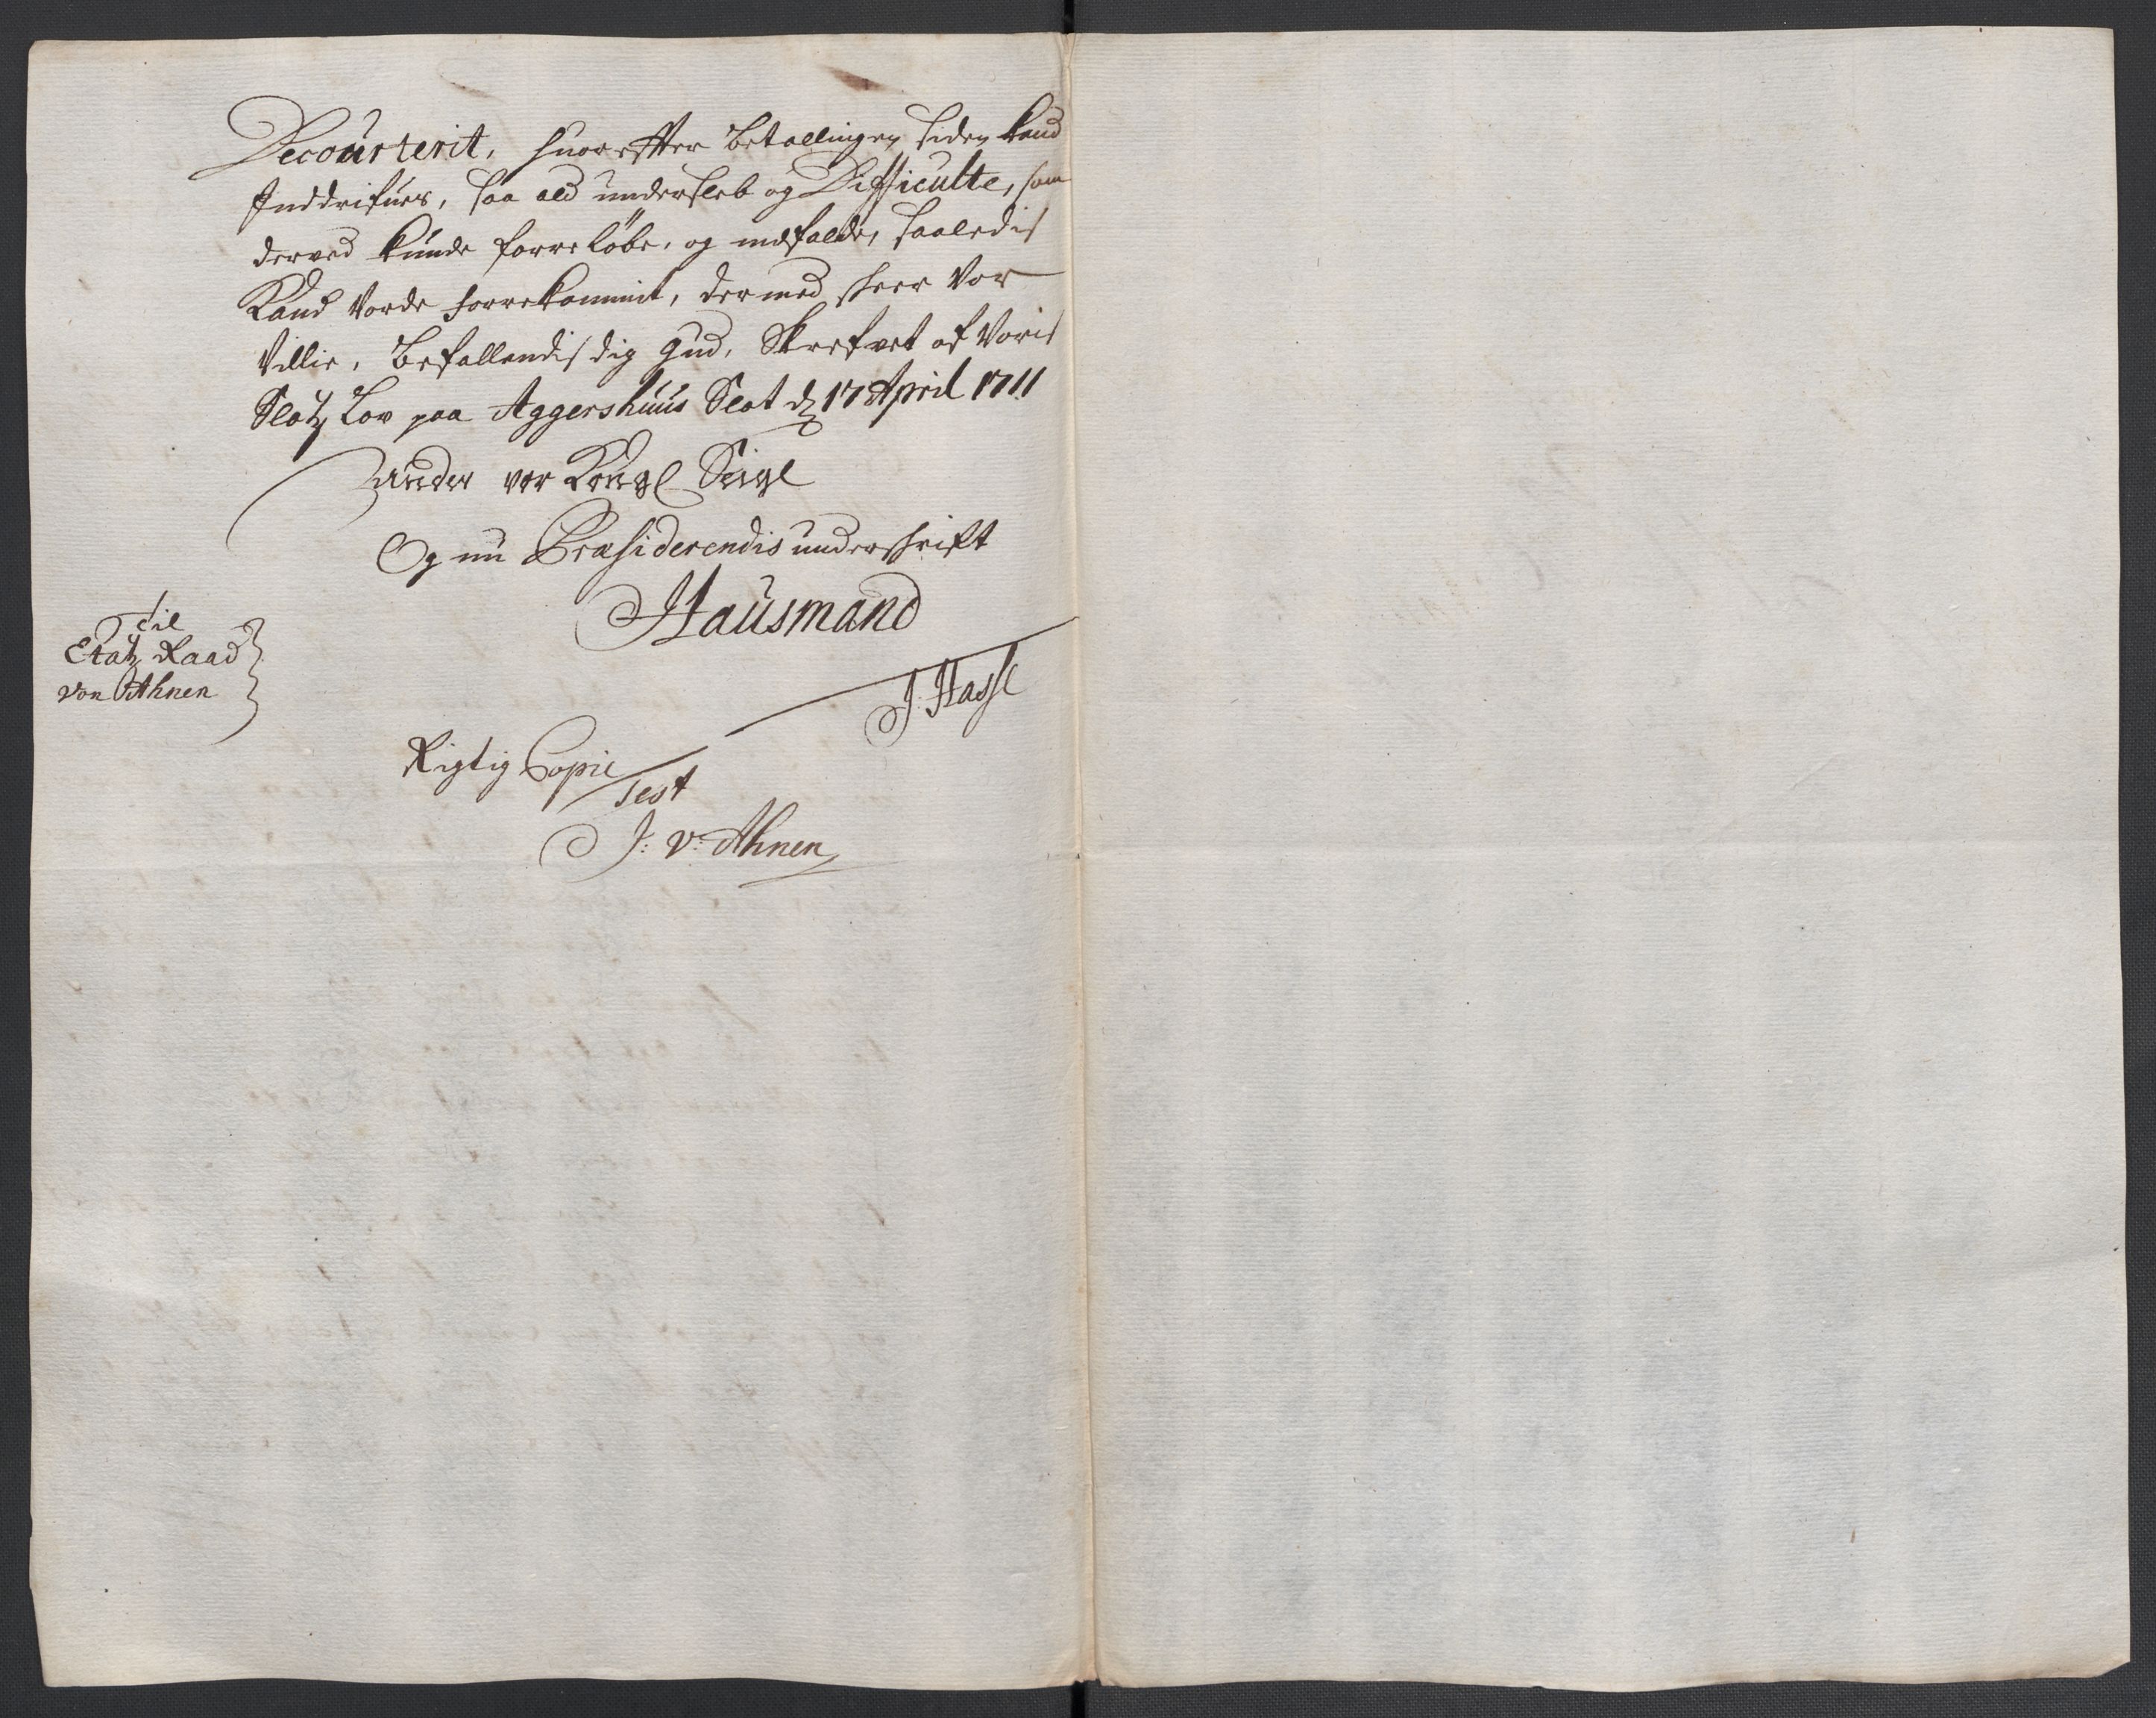 Decourterit, huorefter betallingen siden kand
Inddrifues, saa ald undersleb og Difficulte, som
derved kunde forreløbe, og indfalde, saaledis
Kand vorde forrekommit, dermed skeer Vor
Villie, Befallendis dig Gud, Skrefvet af Voris
Slotz Lov paa Aggershuus Slot d 17 April 1711
Under vor Kongl Seigl
Og nu Præsiderendis underskrift
Hausmand
J. Hassl
Til
Etatz Raad
von Ahnen
Rigtig Copie
Test
J: v: Ahnen